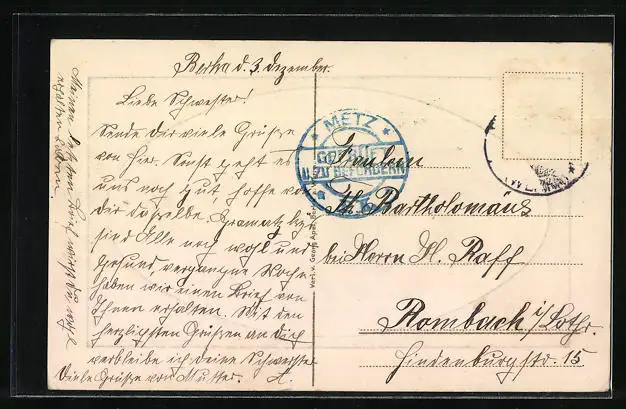 Berka d. 3. Dezember.
Liebe Schwester!
Sende dir viele Grüße
von hier. Sonst geht es
uns noch gut, hoffe von
dir dasselbe.
sind Alle noch wohl und
gesund, vergangne Woche
haben wir einen Brief von
Ihnen erhalten. Mit den
herzlichsten Grüßen an dich
verbleibe ich deine Schwester
Viele Grüße von Mutter. A.
METZ
ZU BEFÖRDERN
Verl. v. Georg
Fräulein
Bartholomäus
bei Herrn H. Raff
Rombach i/Lothr.
Hindenburgstr. 15